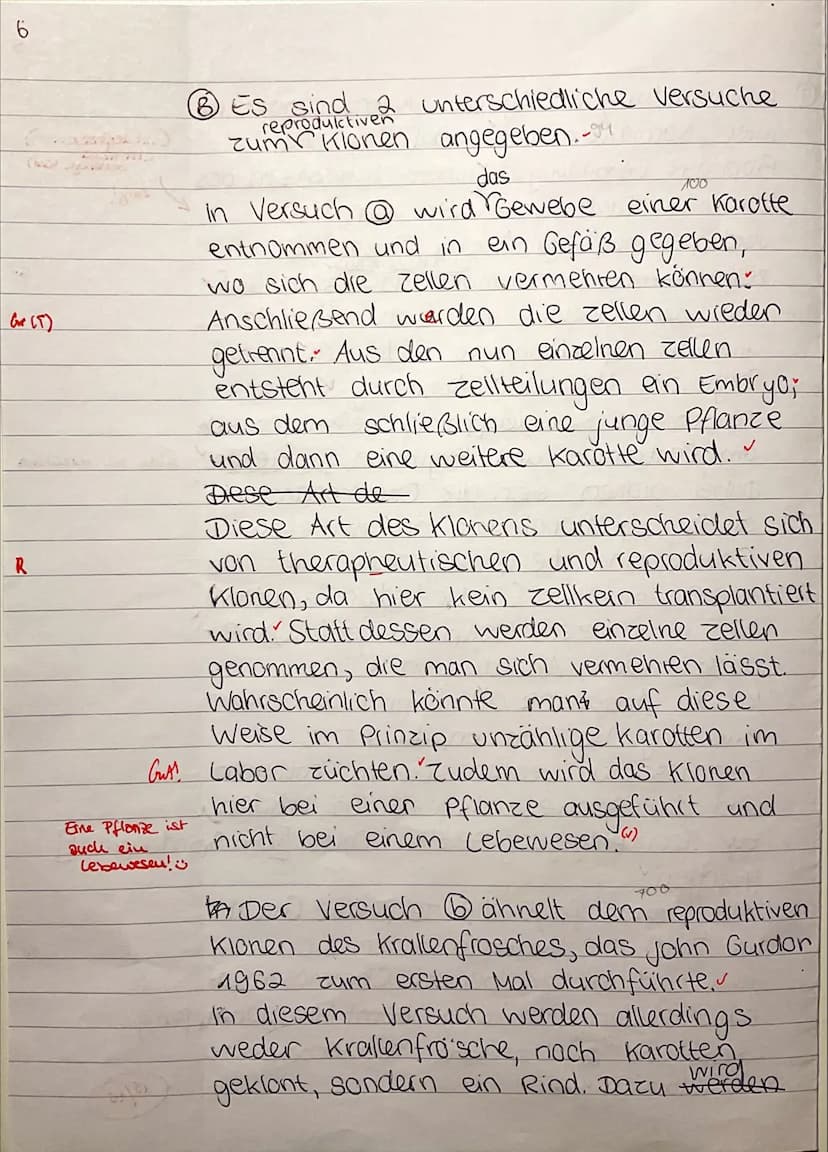 6
Ⓑ Es sind 2 unterschiedliche Versuche
reproduktiven
zum Klonen angegeben.
das 100
In Versuch ⓐ wird Gewebe einer Karotte
entnommen und in ein Gefäß gegeben,
wo sich die Zellen vermehren können.
Gr (T) Anschließend werden die Zellen wieder
getrennt. Aus den nun einzelnen Zellen
entsteht durch Zellteilungen ein Embryo,
aus dem schließlich eine junge Pflanze
und dann eine weitere Karotte wird. ✓
Diese Art de
Diese Art des Klonens unterscheidet sich
R von therapheutischen und reproduktiven
Klonen, da hier kein Zellkern transplantiert
wird.✓ Stattdessen werden einzelne Zellen
genommen, die man sich vermehren lässt.
Wahrscheinlich könnte man auf diese
Weise im Prinzip unzählige Karotten im
Gut! Labor züchten.✓ Zudem wird das Klonen
hier bei einer Pflanze ausgeführt und
nicht bei einem Lebewesen. (✓)
Eine Pflanze ist
auch ein
Lebewesen! ☺
100
Der Versuch ⓑ ähnelt dem reproduktiven
Klonen des Krallenfrosches, das John Gurdon
1962 zum ersten Mal durchführte.✓
In diesem Versuch werden allerdings
weder Krallenfrösche, noch Karotten
geklont, sondern ein Rind. Dazu werden wird